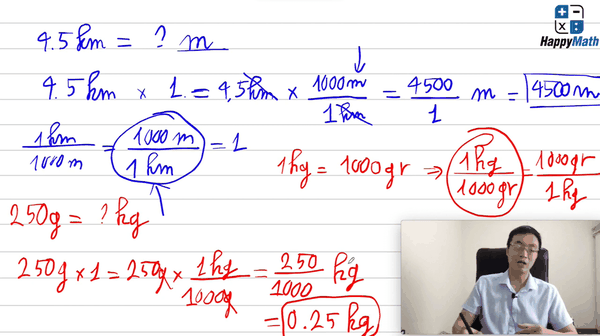 HappyMath
4.5km = ? m
4.5km × 1 = 4,5km × 1000m/1km = 4500/1 m = 4500m
1km/1000m = 1000m/1km = 1
1kg = 1000gr ⇒ 1kg/1000gr = 1000gr/1kg
250g = ? kg
250g × 1 = 250g × 1kg/1000g = 250/1000 kg
= 0.25 kg